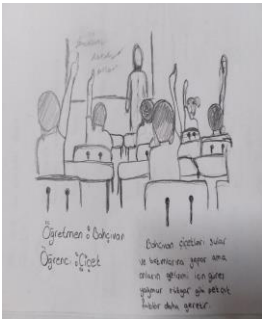 Öğretmen : Bahçıvan
Öğrenci : Çiçek
Bahçıvan çiçekleri sular
ve bakımlarını yapar ama
onların gelişimi için güneş
yağmur rüzgar gibi pek çok
daha gerekir.